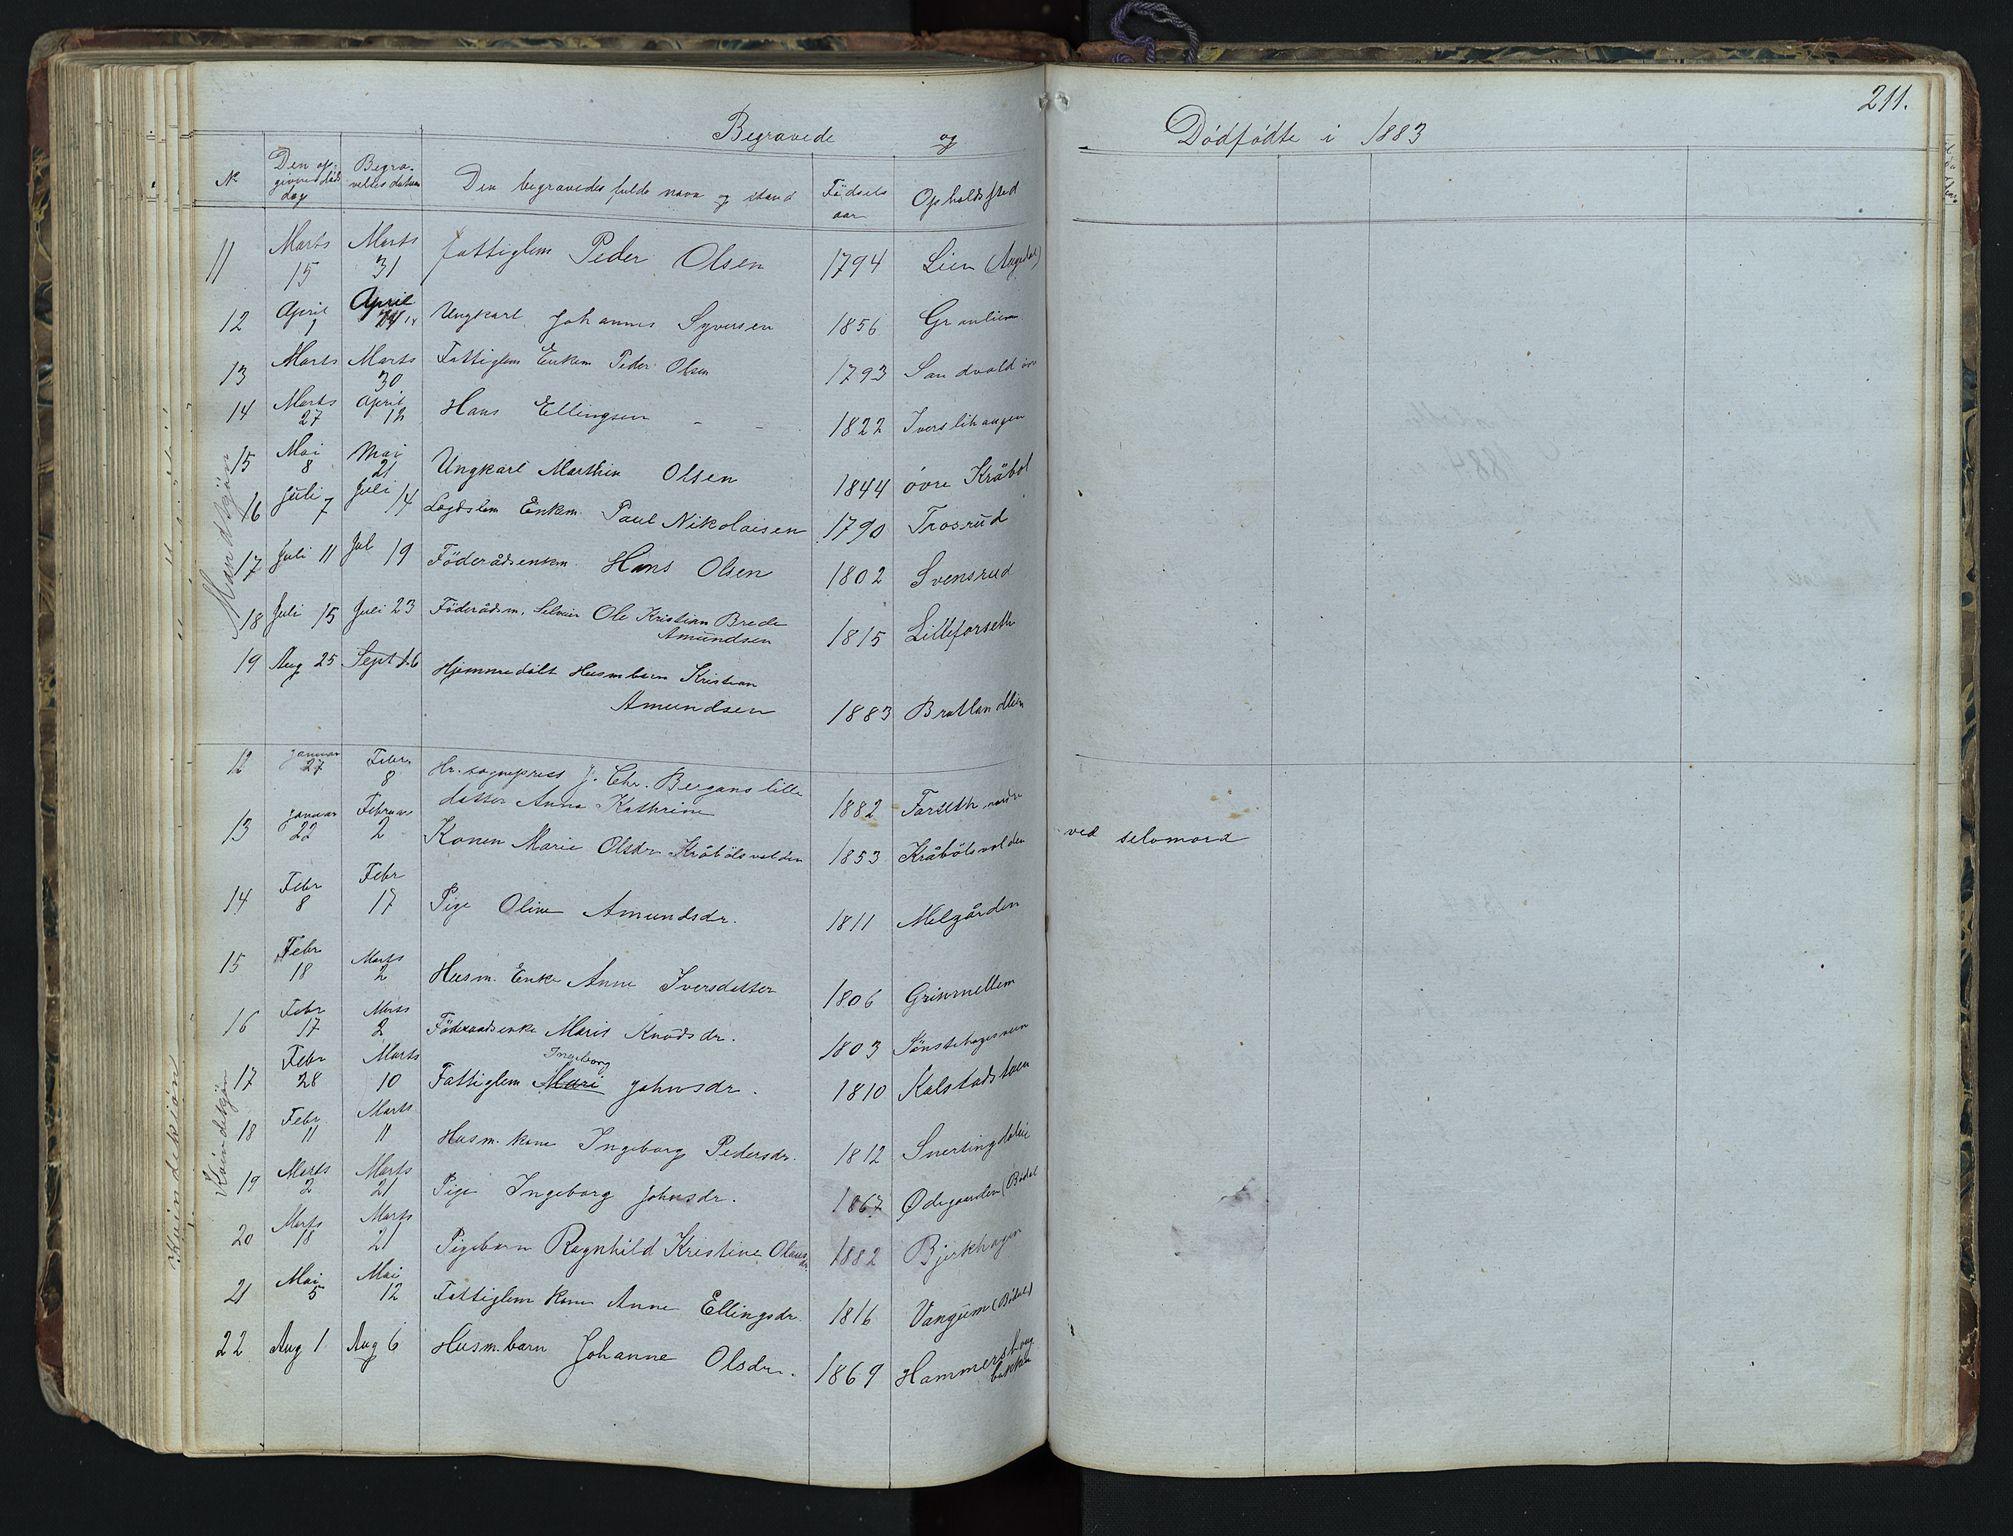 211.
Begravede og Dödfödte i 1883
No Den opgivne döds dag Begravelses datum Den begravedes fulde navn og stand Födsels aar Opholdssted
Mandkjön
11 Marts 15 Marts 31 Fattiglem Peder Olsen 1794 Lien (Augedal)
12 April 1 April 14 Ungkarl Johannes Syversen 1856 Granlien
13 Marts Marts 30 Fattiglem Enkem Peder Olsen 1793 Sandvold övre
14 Marts 27 April 12 Hans Ellingsen - - 1822 Iverslihaugen
15 Mai 8 Mai 21 Ungkarl Marthin Olsen 1844 övre Kråbøl
16 Juli 7 Juli 14 Lægdslem Enkem. Paul Nikolaisen 1790 Trosrud
17 Juli 11 Jul 19 Föderådsenkm. Hans Olsen 1802 Svensrud
18 Juli 15 Juli 23 Föderådsm. Selveier Ole Kristian Brede
Amundsen 1815 Lilleforseth
19 Aug 25 Sept 16 Hjemmedöbt Husmbarn Kristian
Amundsen 1883 Bratlandlien
Kvindekjön
12 Januar 27 Febr 8 Hr. sognepræst J. Chr. Bergans lille
datter Anna Kathrine 1882 Forseth nordre
13 Januar 22 Februar 2 Konen Marie Olsdr Kråbölsvolden 1853 Kråbölsvolden ved selvmord
14 Febr 8 Febr 17 Pige Oline Amundsdr. 1811 Melgården
15 Febr 18 Marts 2 Husm. Enke Anne Iversdatter 1806 Grinnellem
16 Febr 17 Marts 2 Föderaadsenke Marit Knudsdr. 1803
Ingeborg
17 Febr 28 Marts 10 Fattiglem Mari Johnsdr. 1810 Kalstadstuen
18 Febr 11 Marts 11 Husm. kone Ingeborg Pedersdr. 1812 Snertingdalen
19 Marts 2 Marts 21 Pige Ingeborg Johnsdr. 1867 Ødegaarden (Bødal
20 Marts 18 Marts 21 Pigebarn Ragnhild Kristine Olausdr. 1882 Bjerkhagen
21 Mai 5 Mai 12 Fattiglem kone Anne Ellingsdr. 1816 Vangum (Bödal)
22 Aug 1 Aug 6 Husm. barn Johanne Olsdr. 1869 Hammershaug
bakken
Kvindekjön